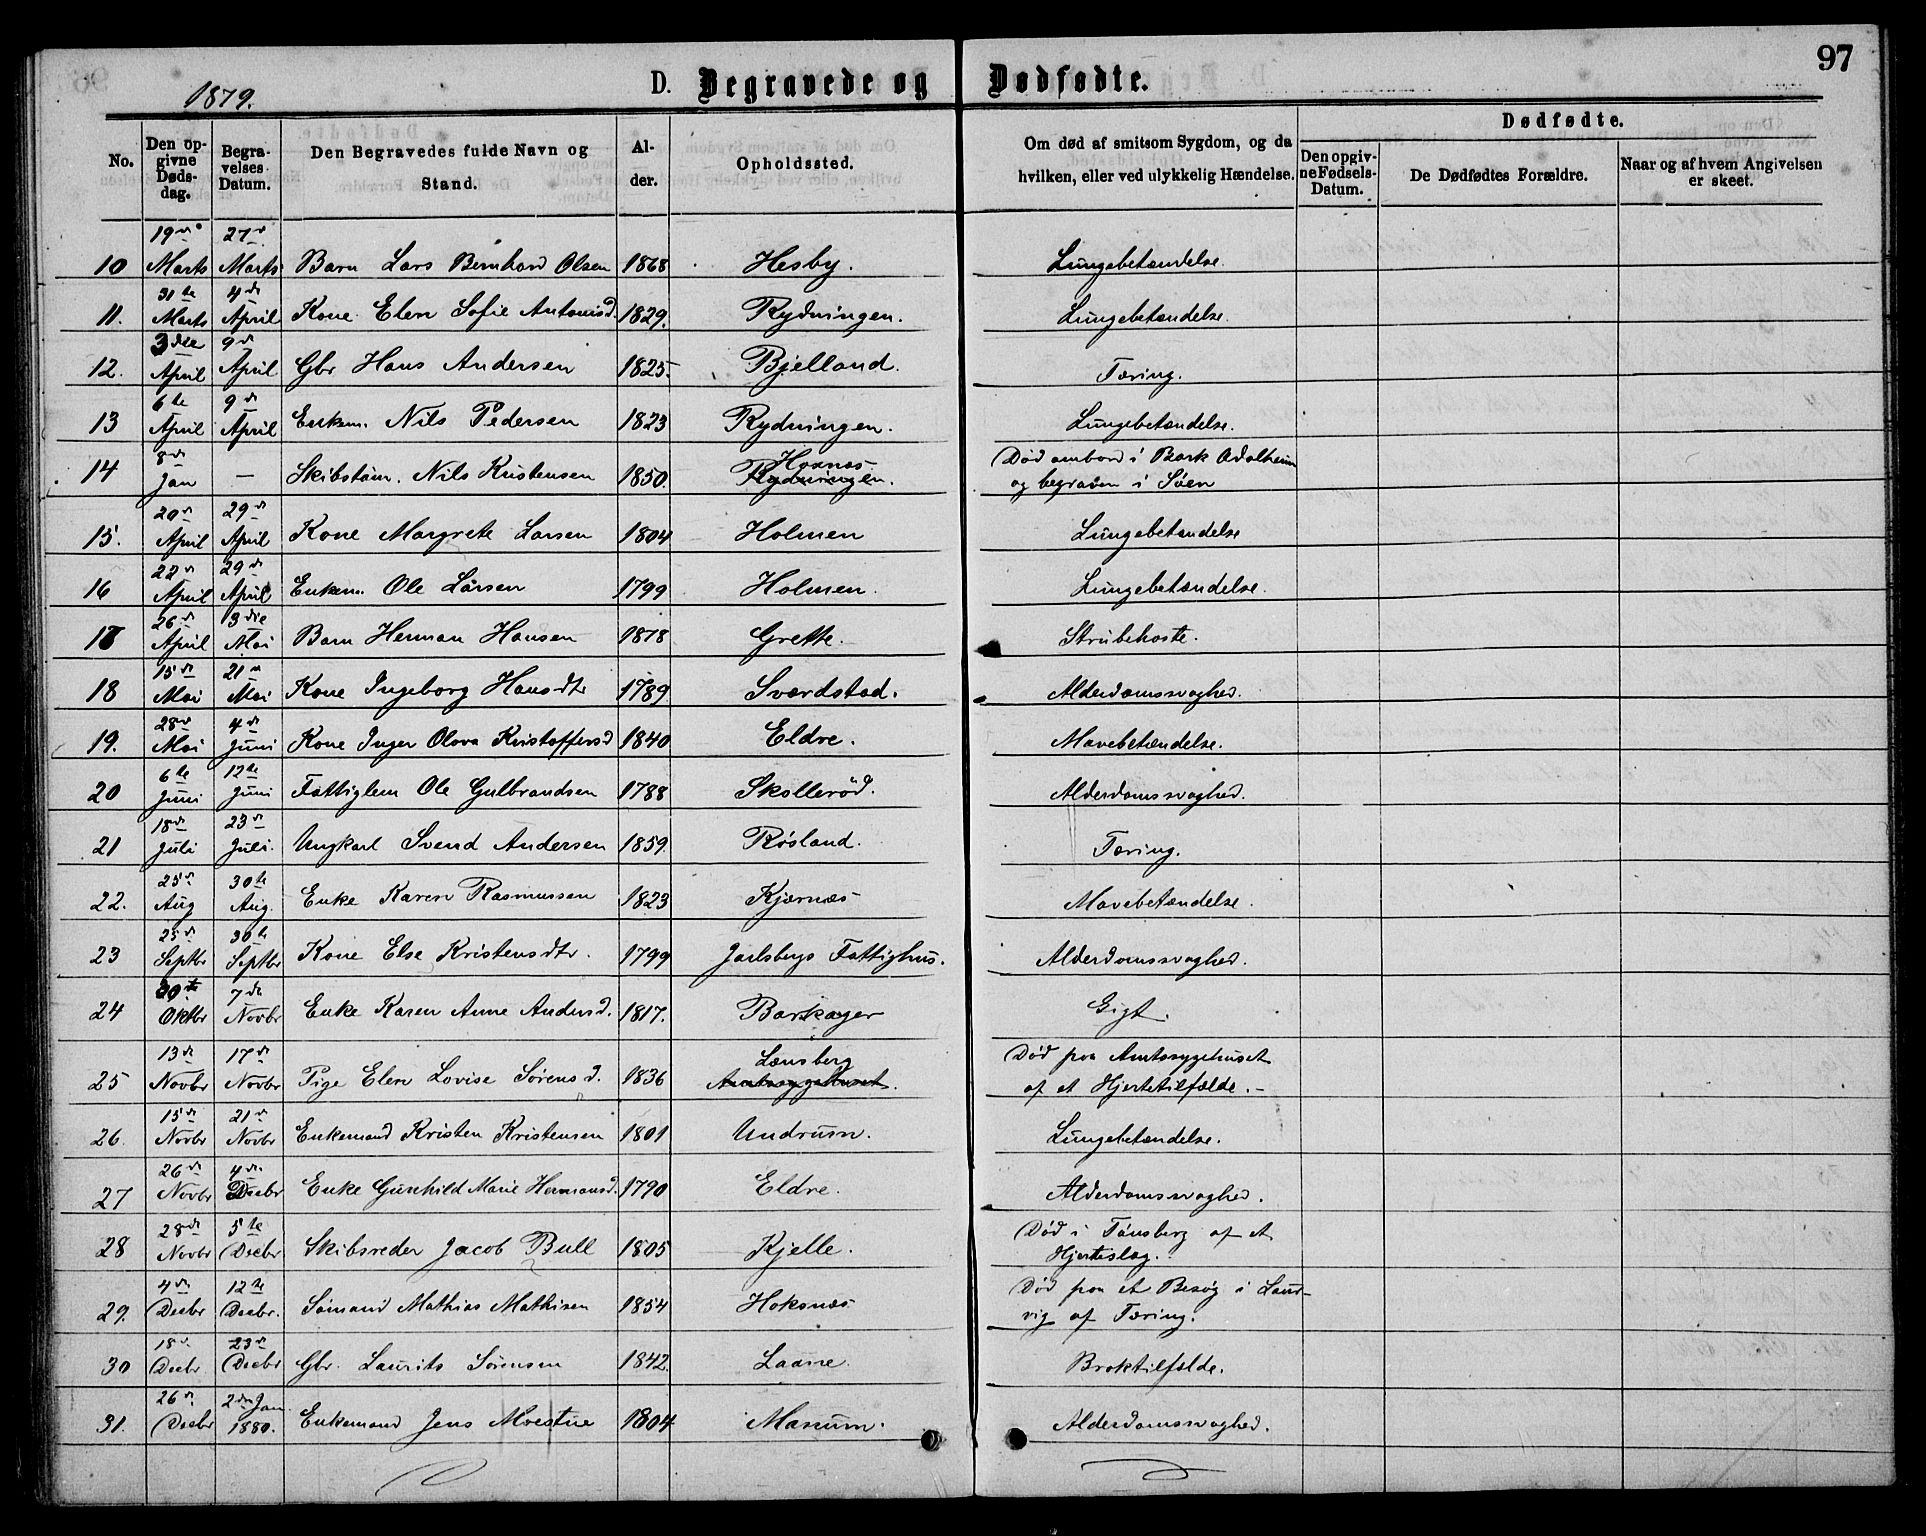 97
1879.
D. Begravede og Dødfødte.
No.
Den op-
givne
Døds-
dag.
Begra-
velses
Datum.
Den Begravedes fulde Navn og
Stand.
Al-
der.
Opholdssted.
Om død af smitsom Sygdom, og da
hvilken, eller ved ulykkelig Hændelse.
Dødfødte.
Den opgiv-
ne Fødsels-
Datum.
De Dødfødtes Forældre.
Naar og af hvem Angivelsen
er skeet.
19de 27de
10 Marts Marts Barn Lars Bernhard Olsen 1868 Hesby. Lungebetændelse.
31te 4de
11. Marts April Kone Elen Sofie Antonisd. 1829. Rydningen. Lungebetændelse.
3die 9de
12. April April Gbr Hans Andersen 1825. Bjelland. Tæring.
6te 9de
13 April April Enkem. Nils Pedersen 1823 Rydningen. Lungebetændelse.
8de Død ombord i Bark Adalheim
14 Jan — Skibstøm. Nils Kristensen 1850. Hoxnæs Rydningen. og begraven i Søen
20de 29de
15. April April Kone Margrete Larsen 1804 Holmen Lungebetændelse
22de 29de
16 April April Enkem. Ole Larsen 1799 Holmen. Lungebetændelse.
26de 3die
17 April Mai Barn Herman Hansen 1878 Grette. Strubehoste.
15de 21de
18 Mai Mai Kone Ingeborg Hansdtr 1789 Sværdstad. Alderdomssvaghed.
28de 4de
19. Mai Juni Kone Inger Olava Kristoffersd 1840 Eldre. Mavebetændelse.
6te 12te
20 Juni Juni Fattiglem Ole Gulbrandsen 1788 Skallerød. Alderdomssvaghed.
18de 23de
21 Juli Juli. Ungkarl Svend Andersen 1859. Røsland. Tæring.
25de 30te
22. Aug Aug. Enke Karen Rasmussen 1823 Kjærnæs Mavebetændelse.
25de 30te
23 Septbr Septbr Kone Else Kristensdtr. 1799 Jarlsbergs Fattighus. Alderdomssvaghed.
30te 7de
24 Oktbr Novbr Enke Karen Anne Andersd. 1817. Barkager Gigt.
13de 17de Lænsberg Død paa Amtssygehuset
25 Novbr Novbr Pige Elen Lovise Sørensd. 1836 Amtssygehuset. af et Hjertetilfælde. –
15de 21de
26. Novbr Novbr Enkemand Kristen Kristensen 1801 Undrum. Lungebetændelse.
26de 4de
27 Novbr Decbr Enke Gunhild Marie Hermansd. 1790 Eldre. Alderdomssvaghed.
28de 5te Død i Tønsberg af et
28 Novbr Decbr Skibsreder Jacob Bull 1805 Kjelle. Hjerteslag.
4de 12te Død paa et Besøg i Laur-
29. Decbr Decbr. Sømand Mathias Mathisen 1854 Hoksnæs vig af Tæring.
18de 23de
30 Decbr Decbr Gbr. Laurits Sørensen 1842. Laane. Broktilfælde.
26de 2den Jan.
31. Decbr 1880. Enkemand Jens Moestue 1804 Manum. Alderdomssvaghed.